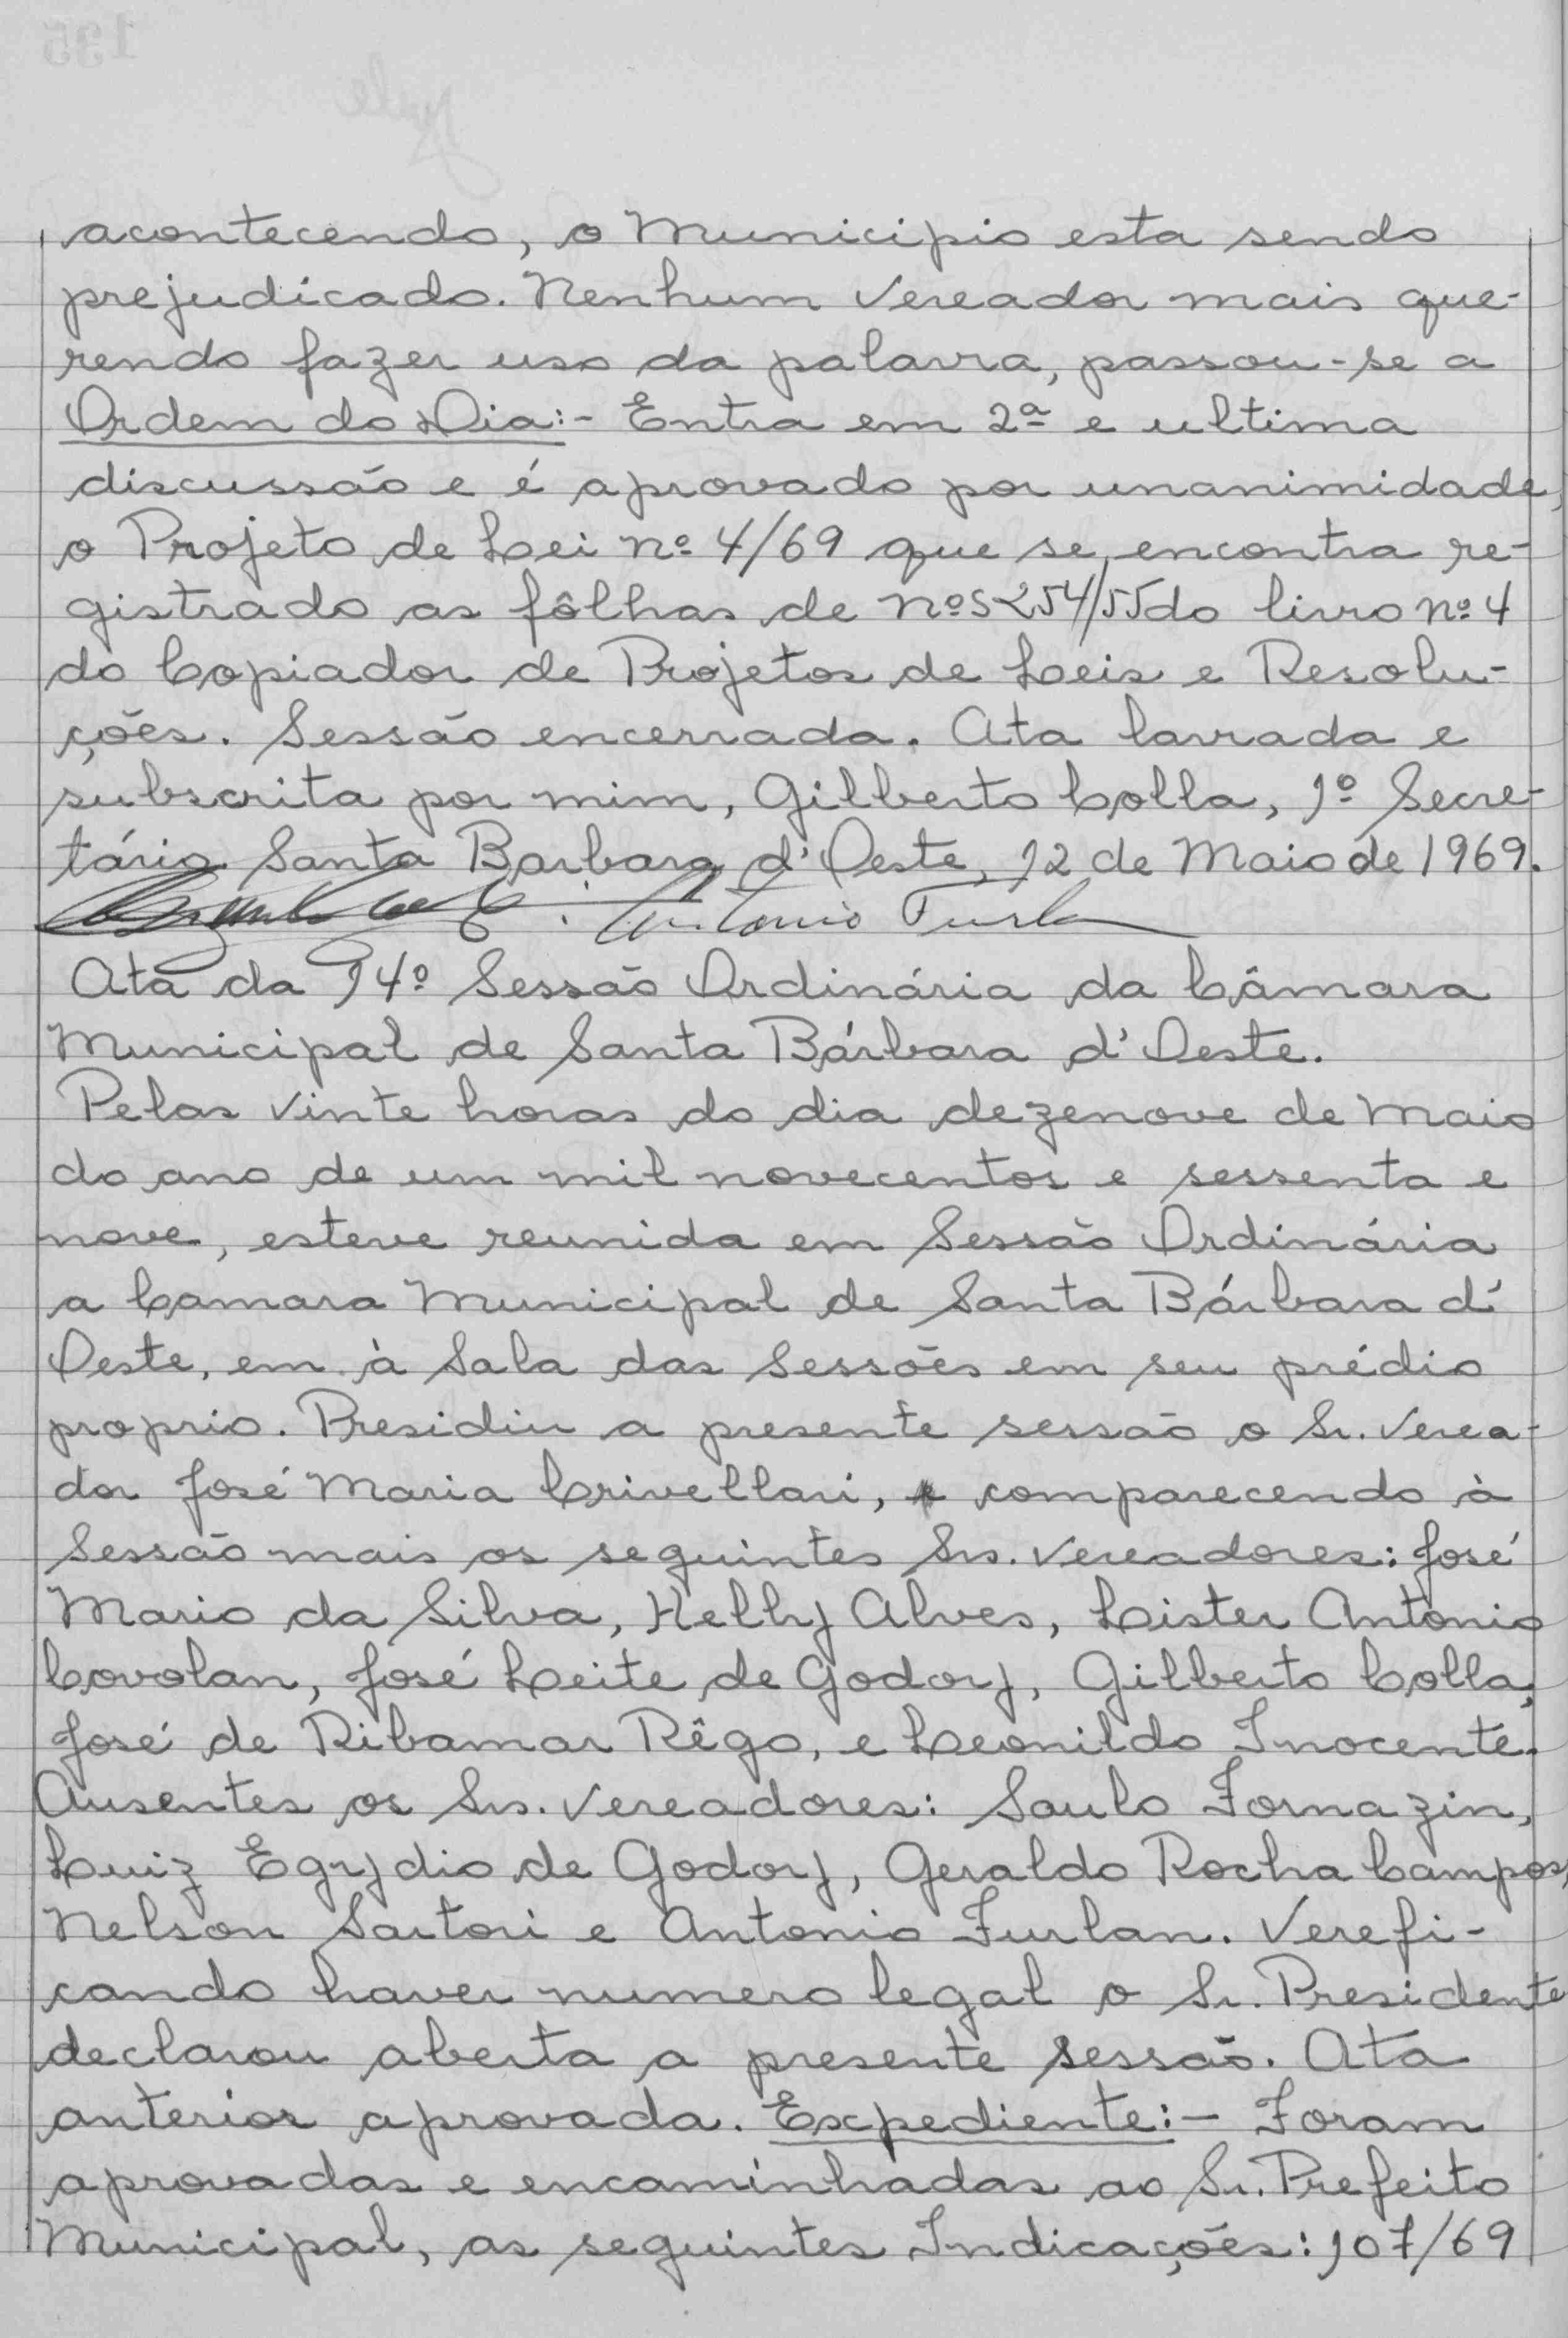 acontecendo, o Municipio esta sendo
prejudicado. Nenhum Vereador mais que-
rendo fazer uso da palavra, passou-se a
Ordem do Dia:- Entra em 2ª e ultima
discussão e é aprovado por unanimidade,
o Projeto de Lei nº 4/69 que se encontra re-
gistrado as fôlhas de nºs 254/55 do livro nº 4
do Copiador de Projetos de Leis e Resolu-
ções. Sessão encerrada. Ata lavrada e
subscrita por mim, Gilberto Colla, 1º Secre-
tário. Santa Barbara d'Oeste, 12 de Maio de 1969.
Antonio Furlan
Ata da 14º Sessão Ordinária da Câmara
Municipal de Santa Bárbara d'Oeste.
Pelas vinte horas do dia dezenove de Maio
do ano de um mil novecentos e sessenta e
nove, esteve reunida em Sessão Ordinária
a Camara Municipal de Santa Bárbara d'
Oeste, em à Sala das Sessões em seu prédio
proprio. Presidiu a presente sessão o Sr. Verea-
dor José Maria Crivellari, comparecendo à
Sessão mais os seguintes Srs. Vereadores: José
Mario da Silva, Helly Alves, Lister Antonio
Covolan, José Leite de Godoy, Gilberto Colla,
José de Ribamar Rêgo, e Leonildo Inocente.
Ausentes os Srs. Vereadores: Saulo Fornazin,
Luiz Egydio de Godoy, Geraldo Rocha Campos,
Nelson Sartori e Antonio Furlan. Verefi-
cando haver numero legal o Sr. Presidente
declarou aberta a presente sessão. Ata
anterior aprovada. Expediente:- Foram
aprovadas e encaminhadas ao Sr. Prefeito
Municipal, as seguintes Indicações: 107/69